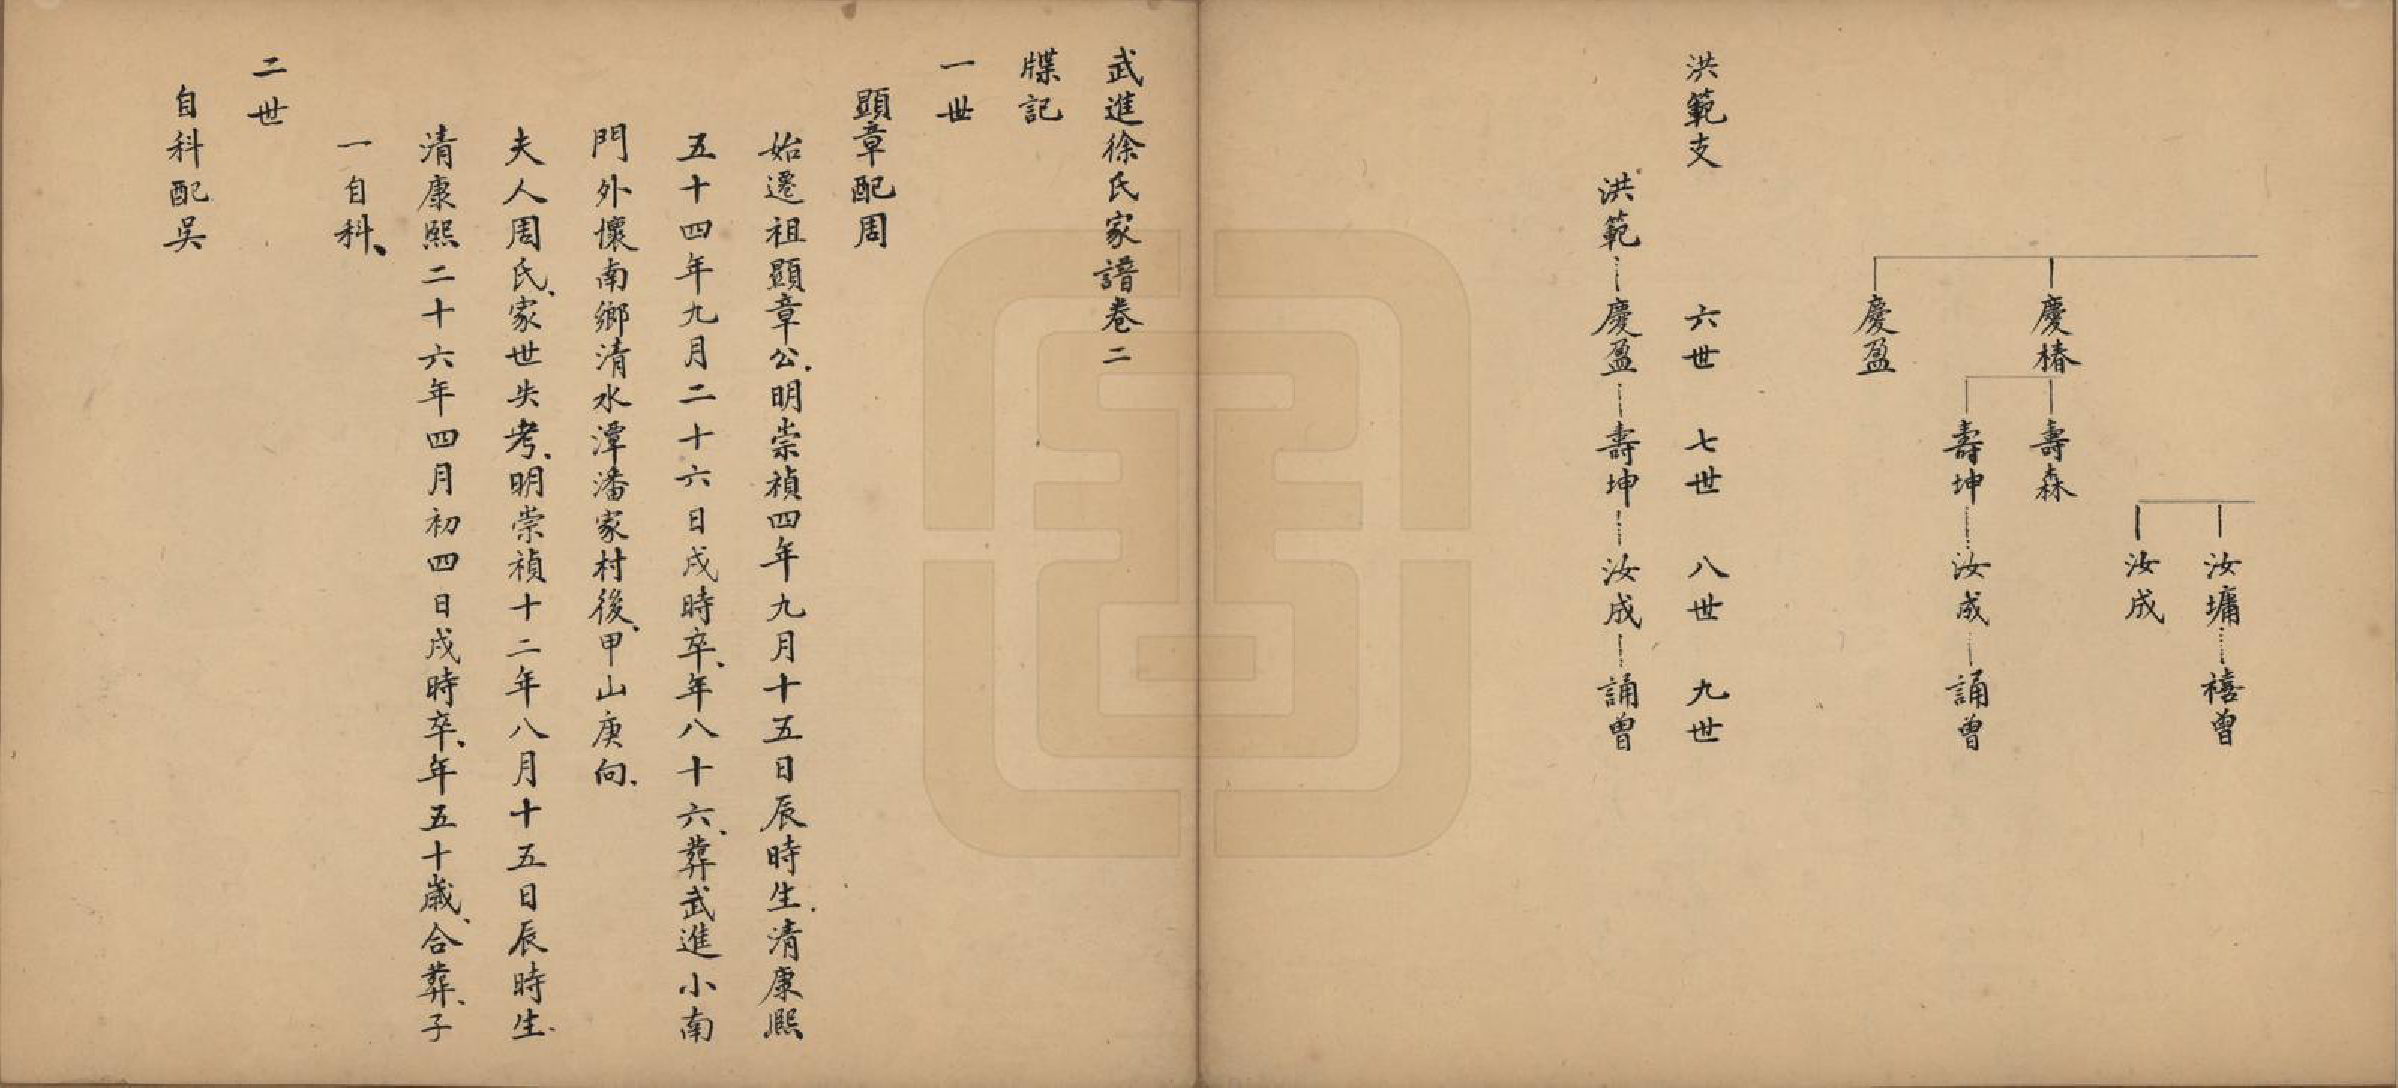 汝墉 禧曾
汝成
慶椿 壽森
壽坤 汝成 誦曾
慶盈
洪範支 六世 七世 八世 九世
洪範 慶盈 壽坤 汝成 誦曾
武進徐氏家譜卷二
牒記
一世
顯章配周
始遷祖顯章公.明崇禎四年九月十五日辰時生.清康熙
五十四年九月二十六日戌時卒、年八十六、葬武進小南
門外懷南鄉清水潭潘家村後、甲山庚向.
夫人周氏、家世失考、明崇禎十二年八月十五日辰時生.
清康熙二十六年四月初四日戌時卒、年五十歲、合葬、子
一自科、
二世
自科配吳